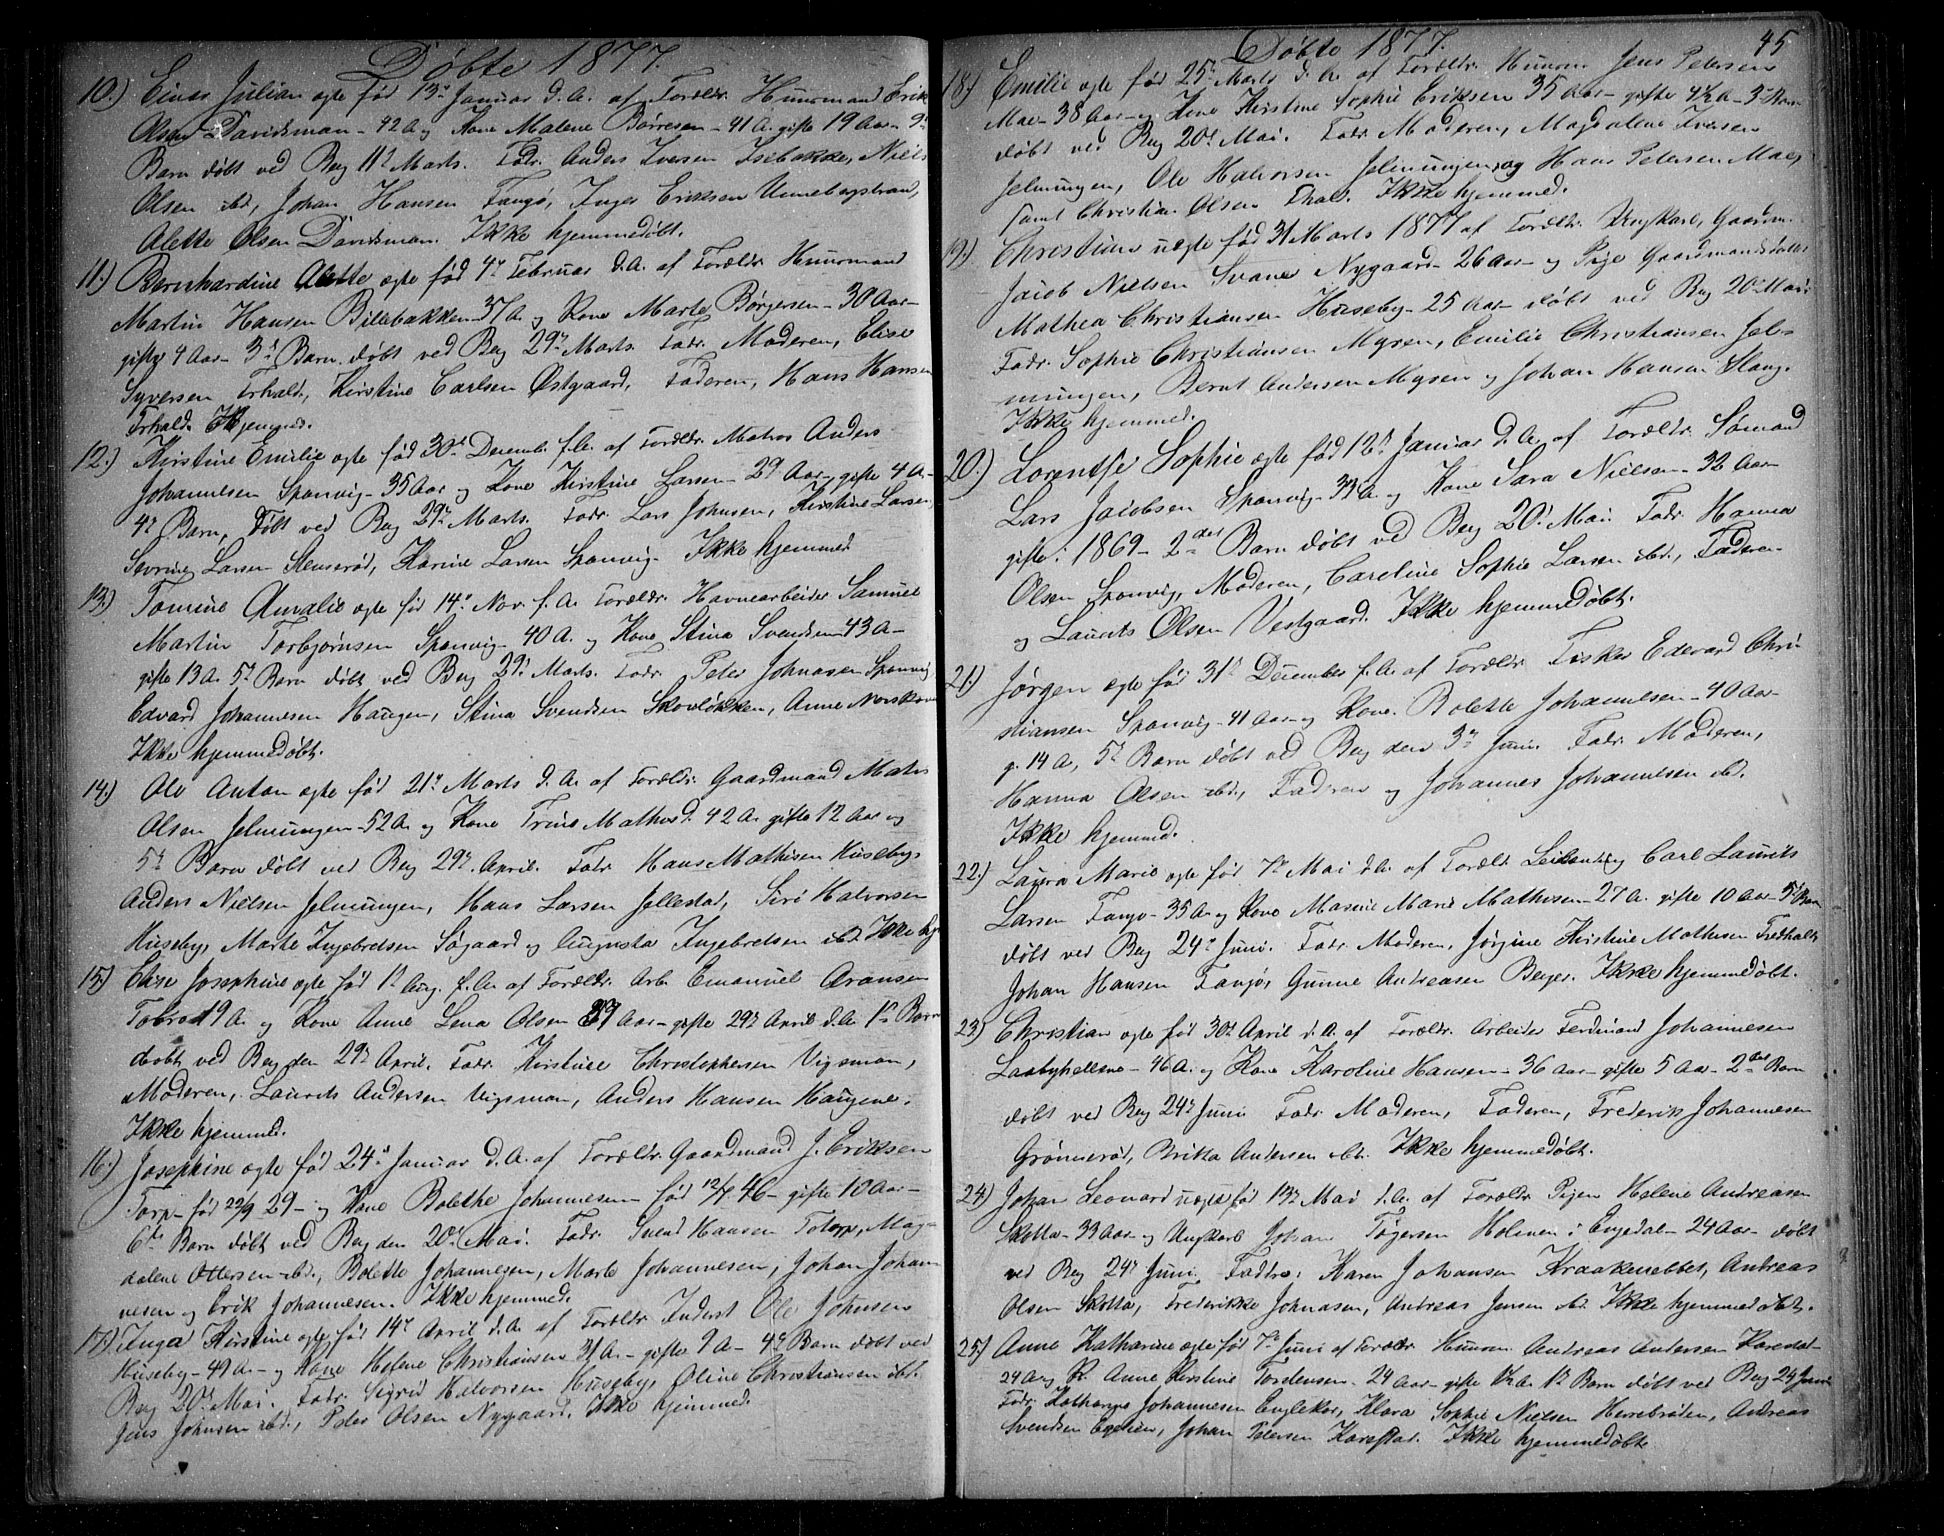 Döbte 1877.
10.) Einar Julian ægte før 13de Januar d.A. af Forældr. Huusmand Erik
Olsen Davidsman - 42 A. og Kone Malene Børresen - 41 A. gifte 19 Aar - 9de
Barn døbt ved Berg 11te Marts. Fadr. Anders Iversen Isebakke, Niels
Olsen ibd., Johan Hansen Fangø, Inger Eriksen
Alette Olsen Davidsman. Ikke hjemmedøbt.
11.) Bernhardine Alette ægte fød 4de Februar d.A. af Forældr. Huusmand
Martin Hansen Billebakken 37 A. og Kone Marte Børgersen - 30 Aar -
gifte 4 Aar - 3de Barn døbt ved Berg 29de Marts. Fadr. Moderen, Elise
Syversen Kirstine Carlsen Østgaard, Faderen, Hans Hansen
12.) Kirstine Emilie ægte fød 30de Decemb. f.A. af Forældr. Matros Anders
Johannesen Sponvig - 35 Aar og Kone Kirstine Larsen - 29 Aar, gifte 4 A -
4de Barn, Døbt ved Berg 29de Marts. Fadr. Lars Johnsen, Kirstine Larsen,
Sevrine Larsen Stenserød, Karine Larsen Sponvig. Ikke hjemmed
13.) Tomine Amalie ægte fød 14de Nov. f.A. Forældr. Havnearbeider Samuel
Martin Torbjørnsen Sponvig - 40 A. og Kone Stina Svendsen 43 A -
gifte 13 A. 5te Barn døbt ved Berg 29de Marts. Fadr. Peter Johnasen Sponvig
Edvard Johannesen Haugen, Stina Svendsen Skovløkken, Anne
Ikke hjemmedøbt.
14.) Ole Anton ægte fød 21de Marts d.A. af Forældr. Gaardmand Mathis
Olsen Jelmungen - 52 A. og Kone Trine Mathesd. 42 A. gifte 12 Aar og
5te Barn døbt ved Berg 29de April. Fadr. Hans Mathisen Huseby,
Anders Nielsen Jelmungen, Hans Larsen Jellestad, Siri Halvorsen
Huseby, Marte Ingebretsen Søgaard og Augusta Ingebretsen ibd. Ikke hj
15.) Elise Josephine ægte fød 1te Aug. f.A. af Forældr. Arb. Emanuel Aronsen
19 A. og Kone Anne Lena Olsen Aar - gifte 29de April d.A. 1te Barn
døbt ved Berg den 29de April. Fadr. Kirstine Christophersen Vigsman,
Moderen, Laurits Andersen Vigsman, Anders Hansen Haugene.
Ikke hjemmed.
16.) Josephine ægte fød 24de Januar d.A. af Forældr. Gaardmand J. Eriksen
Torp - fød 22/9 29 - og Kone Bolethe Johannesen - fød 12/7 46 - gifte 10 Aar -
6te Barn døbt ved Berg den 20de Mai. Fadr. Svend Hansen Mag-
dalene Ottersen ibd., Bolette Johannesen, Marte Johannesen, Johan Johan-
nesen og Erik Johannesen. Ikke hjemmed.
17.) Inga Kirstine ægte fød 14de April d.A. af Forældr. Inderst Ole Johnsen
Huseby - 49 A. - og Kone Helene Christiansen 31 A. - gifte 9 A - 4de Barn døbt ved
Berg 20de Mai. Fadr. Sigrid Halvorsen Huseby, Oline Christiansen ibd.
Jens Johnsen ibd., Peter Olsen Nygaard. Ikke hjemmed.
Döbte 1877. 45
18.) Emilie ægte fød 25de Marts d.A. af Forældr. Huusm. Jens Petersen
Mae - 38 Aar - og Kone Kirstine Sophie Eriksen 35 Aar - gifte 4½ A - 3de Barn
døbt ved Berg 20de Mai. Fadr. Moderen, Magdalene Iversen
Jelmungen, Ole Halvorsen Jelmungen, og Hans Petersen Mae,
samt Christian Olsen Ikke hjemmed.
19.) Christian uægte fød 31 Marts 1877 af Forældr. Ungkarl, Gaardm.
Jacob Nielsen Svane Nygaard - 26 Aar - og Pige Gaardmandsdatter
Mathea Christiansen Huseby - 25 Aar - døbt ved Berg 20de Mai
Fadr. Sophie Christiansen Myren, Emilie Christiansen Jel-
mungen, Bernt Andersen Mysen og Johan Hansen
Ikke hjemmed.
20.) Lorentse Sophie ægte fød 12te Januar d.A. af Forældr. Sømand
Lars Jacobsen Sponvig - 33 A. og Kone Sara Nielsen - 32 Aar -
gifte i 1869 - 2det Barn døbt ved Berg 20de Mai Fadr. Hanna
Olsen Sponvig, Moderen, Caroline Sophie Larsen ibd., Faderen
og Laurits Olsen Vestgaard. Ikke hjemmedøbt.
21.) Jørgen ægte fød 31te December f.A. af Forældr. Fisker Edevard Chri-
stiansen Sponvig - 41 Aar - og Kone Bolette Johannesen - 40 Aar -
g. 14 A, 5te Barn døbt ved Berg den 3de Juni. Fadr. Moderen,
Hanna Olsen ibd., Faderen og Johannes Johannesen ibd.
Ikke hjemmed.
22.) Laura Marie ægte fød 7de Mai d.A. af Forældr. Leilænding Carl Laurits
Larsen Fangø - 35 A. og Kone Masine Marie Mathesen - 27 A. gifte 10 Aar - 5te Barn
døbt ved Berg 24de Juni. Fadr. Moderen, Jørgine Kirstine Mathesen
Johan Hansen Fangø, Gunne Andreasen Berger. Ikke hjemmedøbt.
23.) Christian ægte fød 30de April d.A. af Forældr. Arbeider Ferdinand Johannesen
Laabyhellene - 46 A. og Kone Karoline Hansen - 36 Aar - gifte 5 Aar - 2det Barn
døbt ved Berg 24de Juni Fadr. Moderen, Faderen, Frederik Johannesen
Grønnerød, Britta Andersen ibd. Ikke hjemmedøbt.
24.) Johan Leonard uægte fød 13de Mai d.A. af Forældr. Pigen Helene Andreasen
Skotta - 33 Aar - og Ungkarl Johan Tøgersen Holmen i Engedal - 24 Aar - døbt
ved Berg 24de Juni. Faddre: Karen Johansen Kraakenebbet, Andreas
Olsen Skotta, Frederikke Johnasen, Andreas Jensen ibd. Ikke hjemmedøbt.
25.) Anne Katharine ægte fød 7de Juni af Forældr. Huusm. Andreas Andersen Karrestad
24 A og K. Anne Kirstine Tordensen - 24 Aar - gifte ½ A. 1te Barn døbt ved Berg 24 Juni
Fadr. Kathrine Johannesen Englekor, Klara Sophie Nielsen Herrebrøden, Andreas
Svendsen Johan Petersen Karrestad. Ikke hjemmedøbt